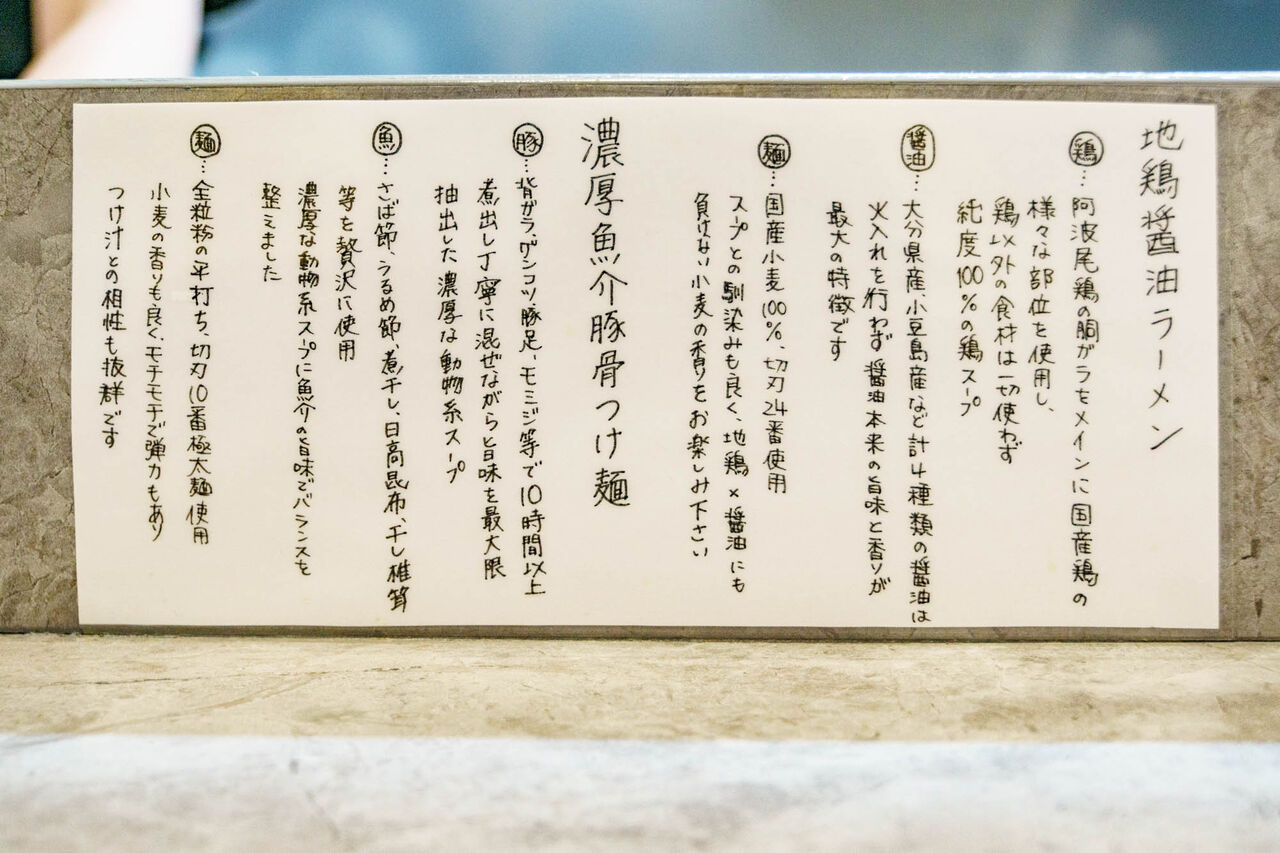 地鶏醤油ラーメン
鶏…阿波尾鶏の胴ガラをメインに国産鶏の
様々な部位を使用し、
鶏以外の食材は一切使わず
純度100%の鶏スープ
醤油…大分県産、小豆島産など計4種類の醤油は
火入れを行わず醤油本来の旨味と香りが
最大の特徴です
麺…国産小麦100%、切刃24番使用
スープとの馴染みも良く、地鶏×醤油にも
負けない小麦の香りをお楽しみ下さい
濃厚魚介豚骨つけ麺
豚…背ガラ、ゲンコツ、豚足、モミジ等で10時間以上
煮出し丁寧に混ぜながら旨味を最大限
抽出した濃厚な動物系スープ
魚…さば節、うるめ節、煮干し、日高昆布、干し椎茸
等を贅沢に使用
濃厚な動物系スープに魚介の旨味でバランスを
整えました
麺…全粒粉の平打ち、切刃10番極太麺使用
小麦の香りも良く、モチモチで弾力もあり
つけ汁との相性も抜群です